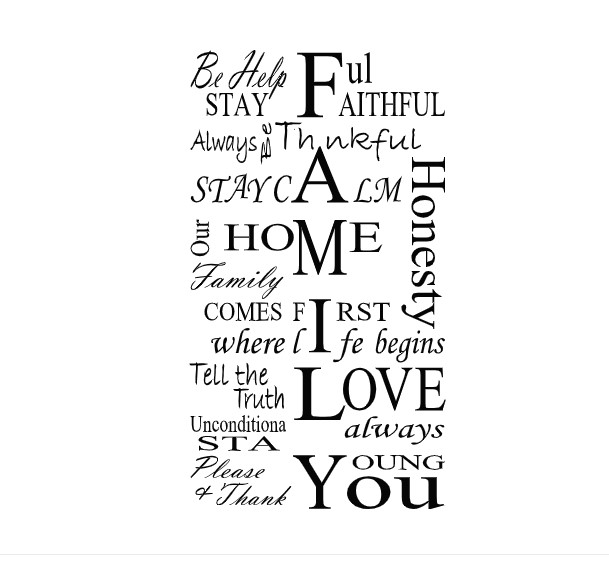 Be Help Ful
STAY FAITHFUL
Always Be Thankful
STAY CALM
Honesty
Our HOME
Family
COMES FIRST
where life begins
Tell the
Truth
LOVE
Unconditiona
always
STAY
YOUNG
Please
& Thank You